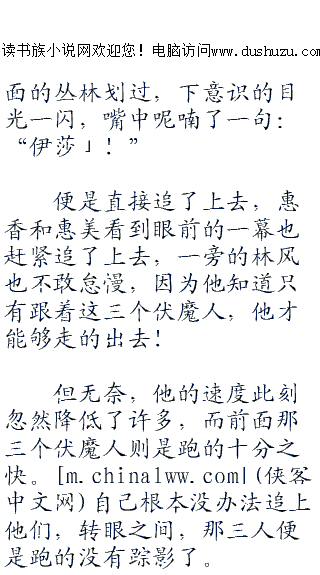 读书族小说网欢迎您！电脑访问www.dushuzu.com
面的丛林划过，下意识的目
光一闪，嘴中呢喃了一句：
“伊莎」！”
便是直接追了上去，惠
香和惠美看到眼前的一幕也
赶紧追了上去，一旁的林风
也不敢怠漫，因为他知道只
有跟着这三个伏魔人，他才
能够走的出去！
但无奈，他的速度此刻
忽然降低了许多，而前面那
三个伏魔人则是跑的十分之
快。[m.china1ww.com|(侠客
中文网)自己根本没办法追上
他们，转眼之间，那三人便
是跑的没有踪影了。